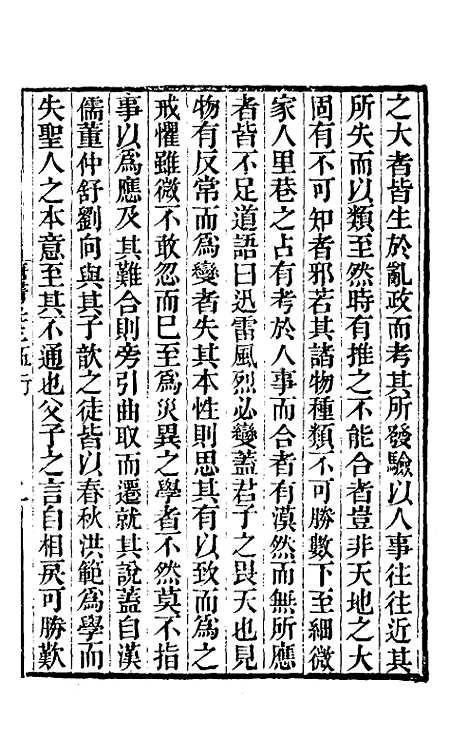 之大者皆生於亂政而考其所發驗以人事往往近其
所失而以類至然時有推之不能合者豈非天地之大
固有不可知者邪若其諸物種類不可勝數下至細微
家人里巷之占有考於人事而合者有漠然而無所應
者皆不足道語曰迅雷風烈必變蓋君子之畏天也見
物有反常而為變者失其本性則思其有以致而為之
戒懼雖微不敢忽而已至為災異之學者不然莫不指
事以為應及其難合則旁引曲取而遷就其說蓋自漢
儒董仲舒劉向與其子歆之徒皆以春秋洪範為學而
失聖人之本意至其不通也父子之言自相戾可勝歎